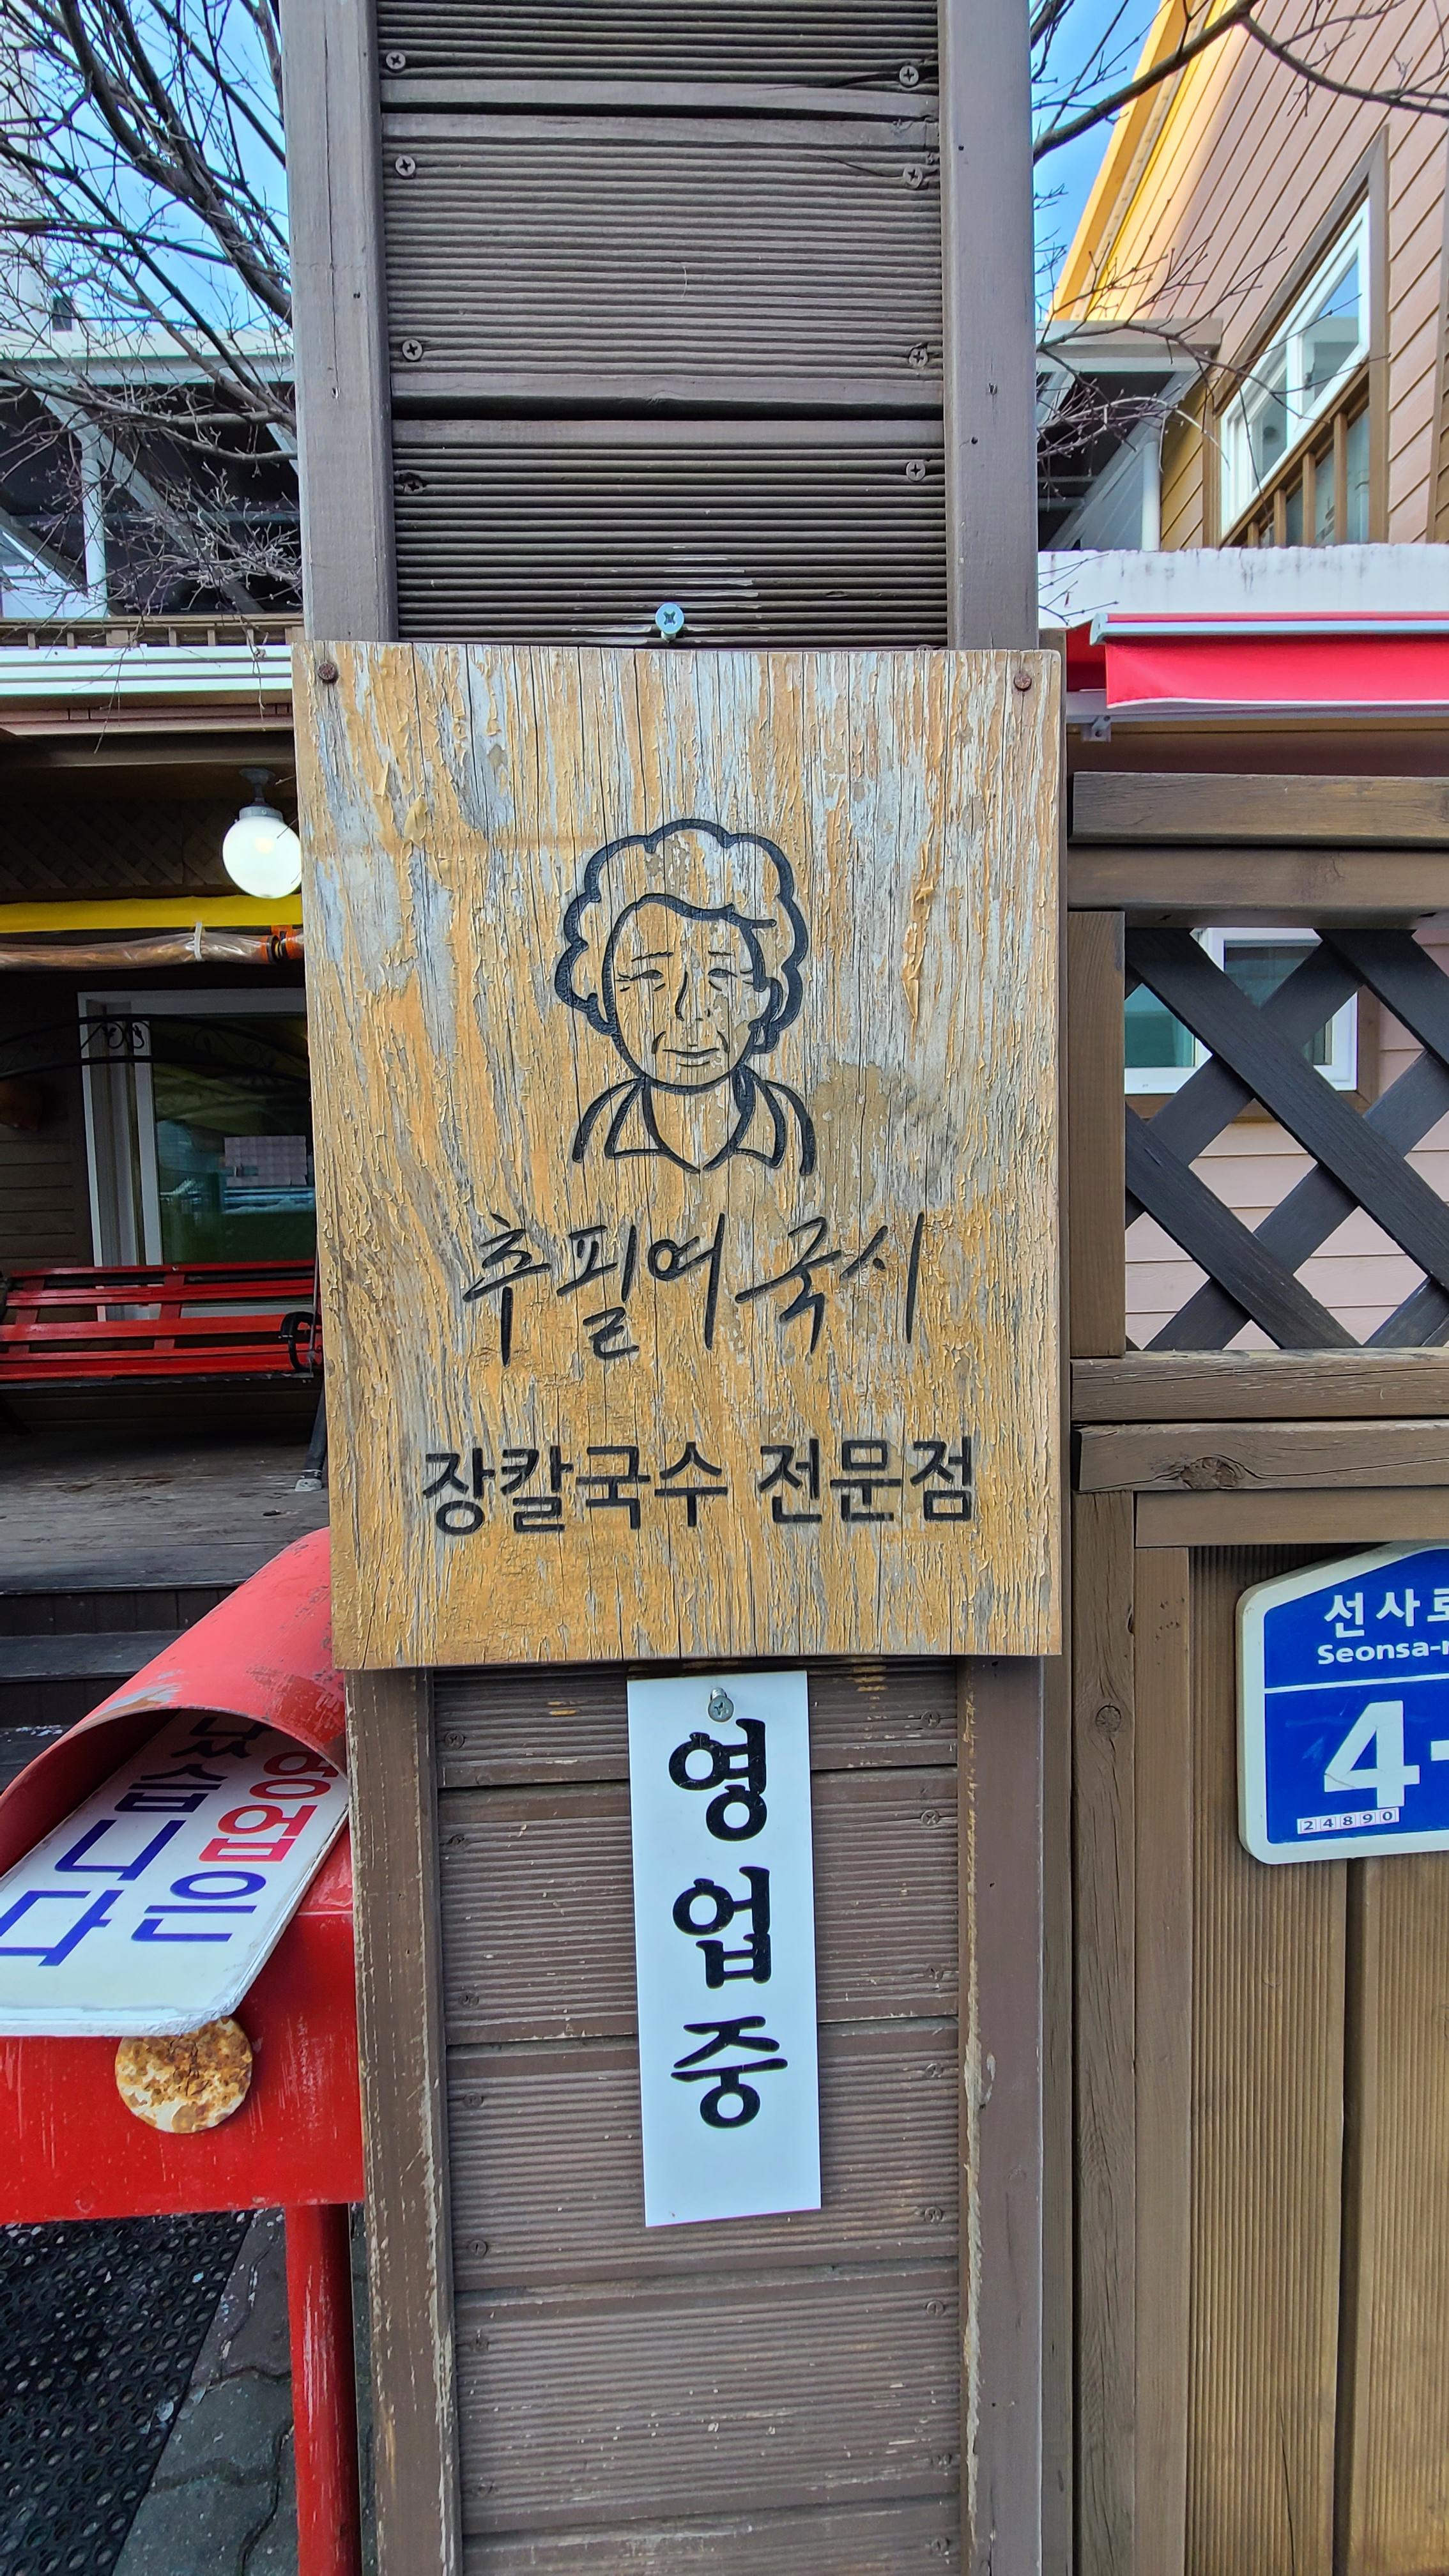 추필여 국시
장칼국수 전문점
영업중
영업은
습니다
선사로
Seonsa-r
4-
24890